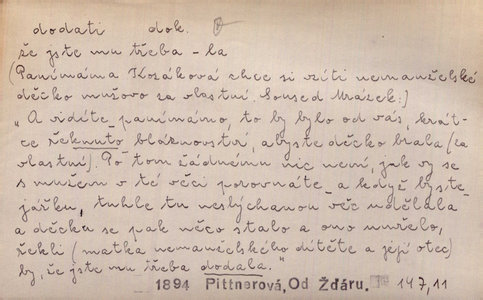 dodati dok.
že jste mu třeba -la
(Panímáma Kozáková chce si vzíti nemanželské
děcko mužovo za vlastní. Soused Mrázek:)
„A vidíte, panímámo, to by bylo od vás, krát-
ce řeknuto bláznovství, abyste děcko brala (za
vlastní). Po tom žádnému nic není, jak vy se
s mužem v té věci porovnáte, a když byste,
jářku, tuhle tu neslýchanou věc udělala
a děcku se pak něco stalo a ono umřelo,
řekli (matka nemanželského dítěte a její otec)
by, že jste mu třeba dodala."
1894 Pittnerová, Od Žďáru. 147, 11